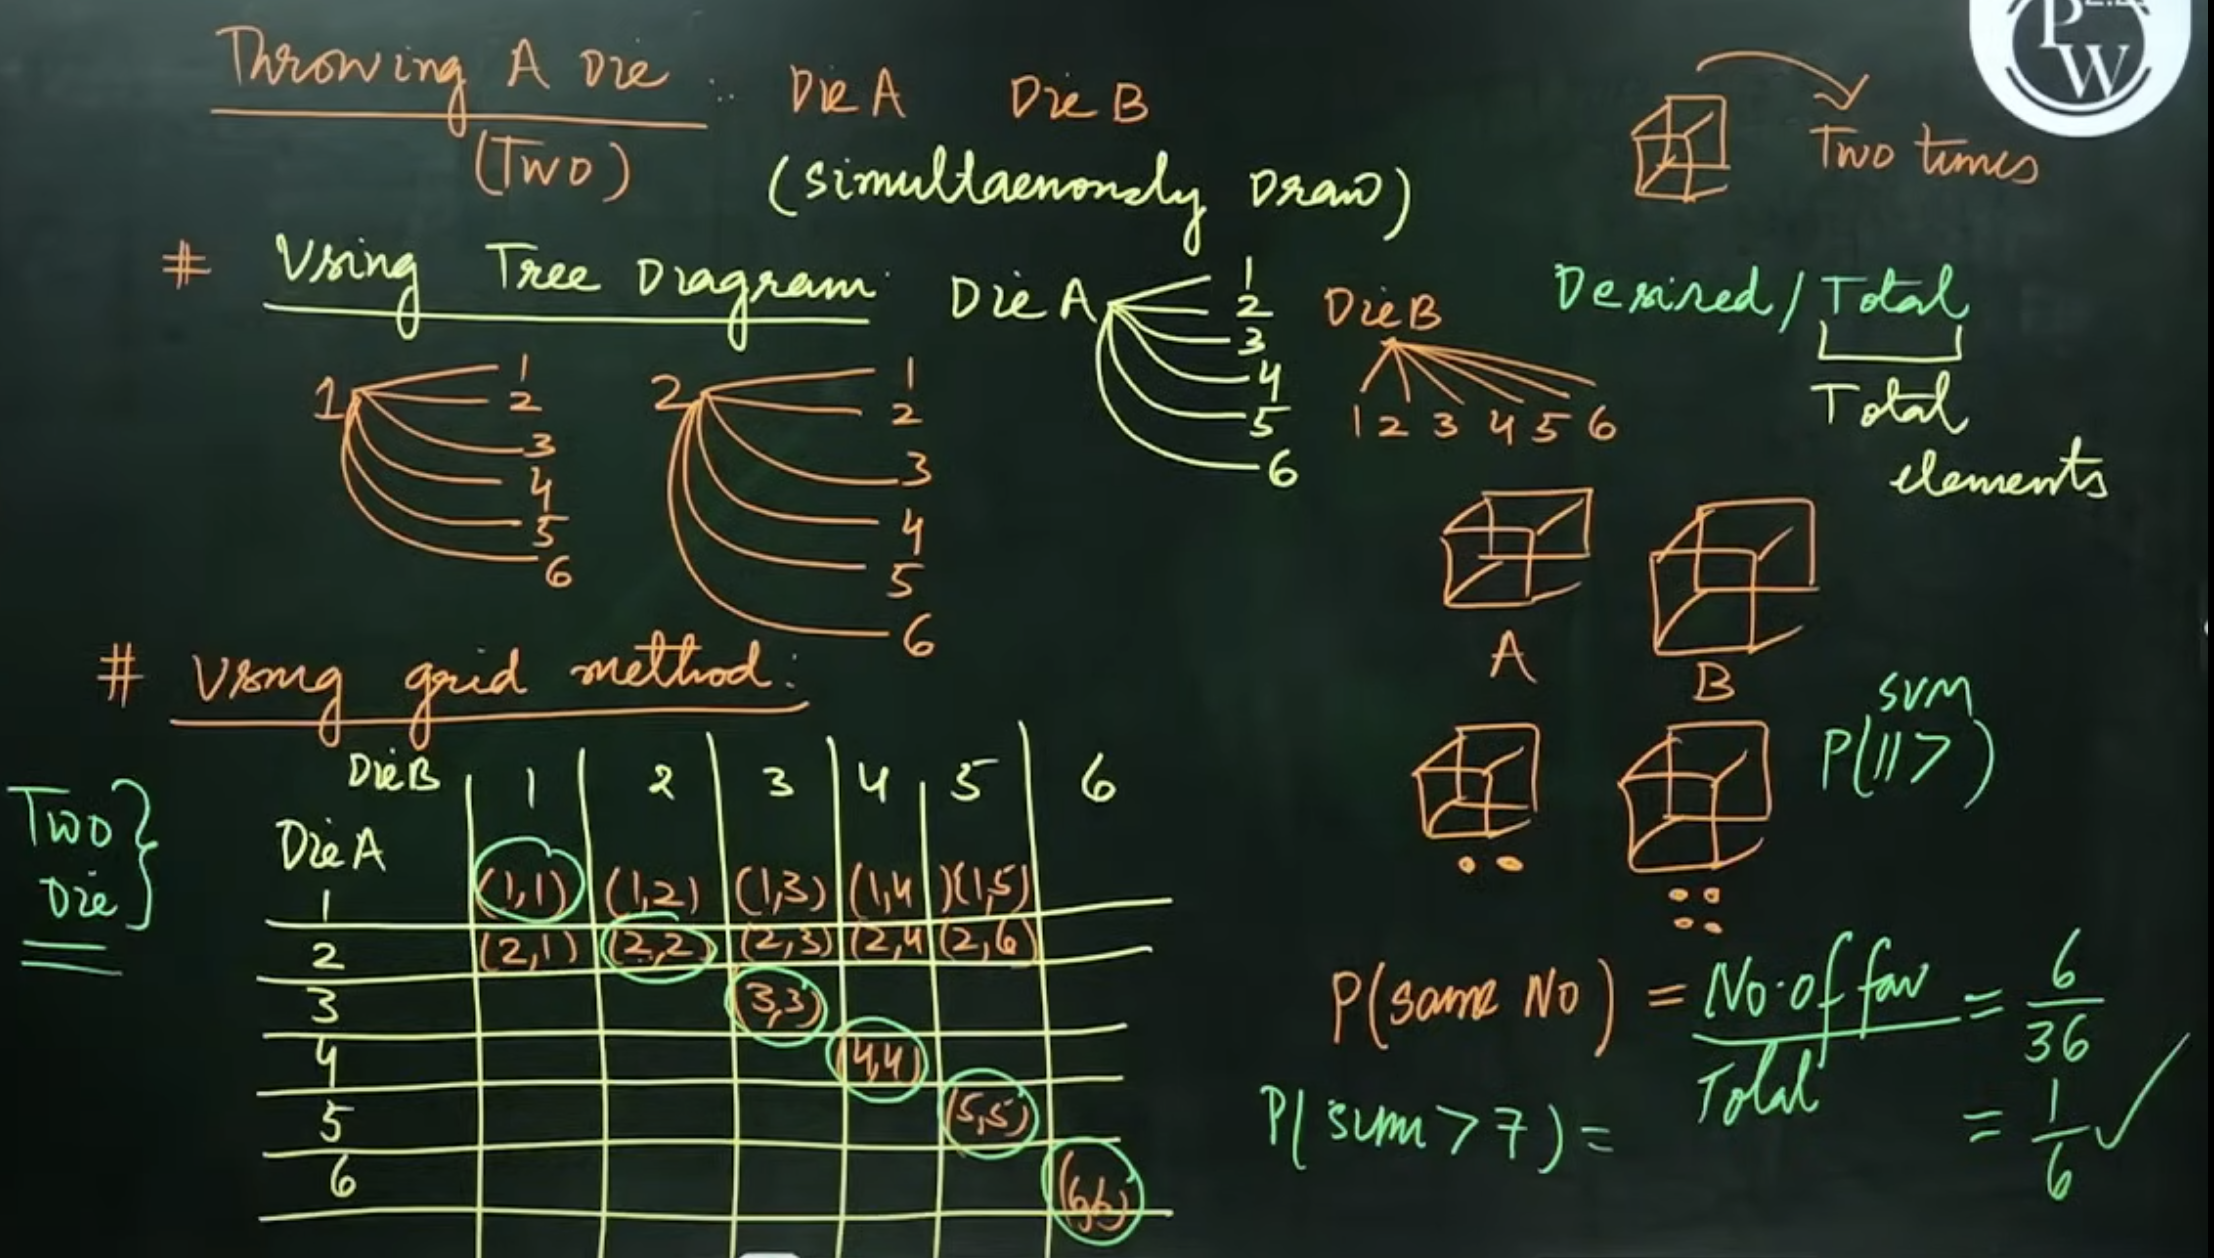 PW
Throwing A Die
(Two)
Die A Die B
(simultaenously Draw)
Two times
# Using Tree Diagram
Die A
1
2
3
4
5
6
Die B
1 2 3 4 5 6
Desired / Total
Total
elements
1
1
2
3
4
5
6
2
1
2
3
4
5
6
A
B
# Using grid method:
Two
Die
Die B 1 2 3 4 5 6
Die A
1 (1,1) (1,2) (1,3) (1,4) (1,5)
2 (2,1) (2,2) (2,3) (2,4 (2,6)
3 (3,3)
4 (4,4)
5 (5,5)
6 (6,6)
sum
P(11>)
P(same No) = No. of fav / Total = 6/36
= 1/6 ✓
P(sum > 7) =